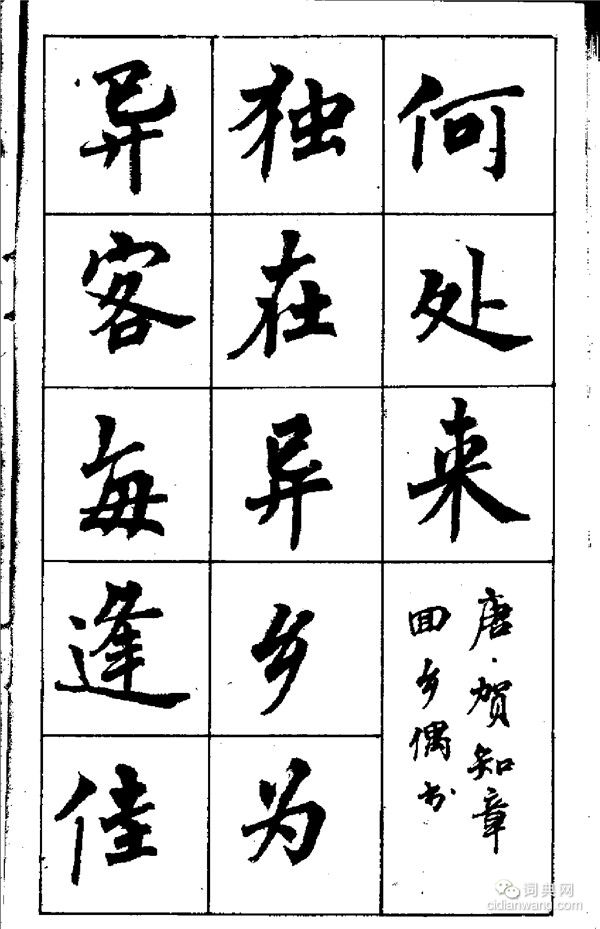 何处来
唐·贺知章
回乡偶书
独在异乡为
异客每逢佳
词典网
cidianwang.com